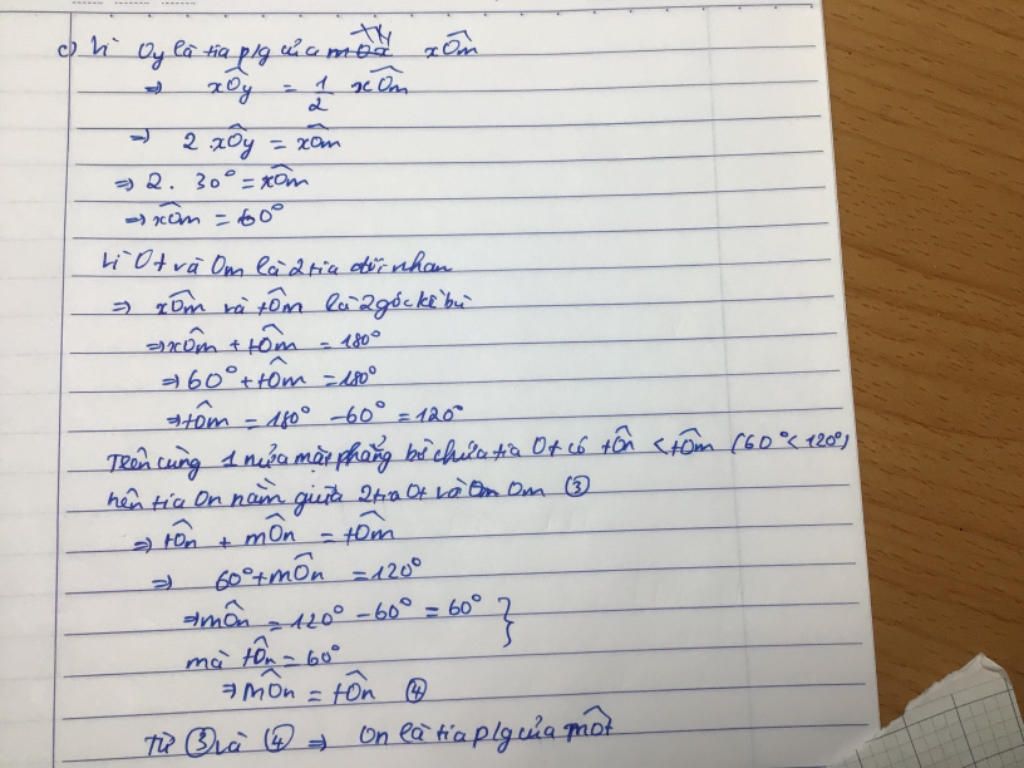 c) Vì Oy là tia p/g của xÔm
⇒ xÔy = 1/2 xÔm
⇒ 2.xÔy = xÔm
⇒ 2. 30° = xÔm
⇒ xÔm = 60°
Vì Ot và Om là 2 tia đối nhau
⇒ xÔm và tÔm là 2 góc kề bù
⇒ xÔm + tÔm = 180°
⇒ 60° + tÔm = 180°
⇒ tÔm = 180° - 60° = 120°
Trên cùng 1 nửa mặt phẳng bờ chứa tia Ot có tÔn < tÔm (60° < 120°)
nên tia On nằm giữa 2 tia Ot và Om ③
⇒ tÔn + mÔn = tÔm
⇒ 60° + mÔn = 120°
⇒ mÔn = 120° - 60° = 60° }
mà tÔn = 60°
⇒ mÔn = tÔn ④
Từ ③ và ④ ⇒ On là tia p/g của mÔt